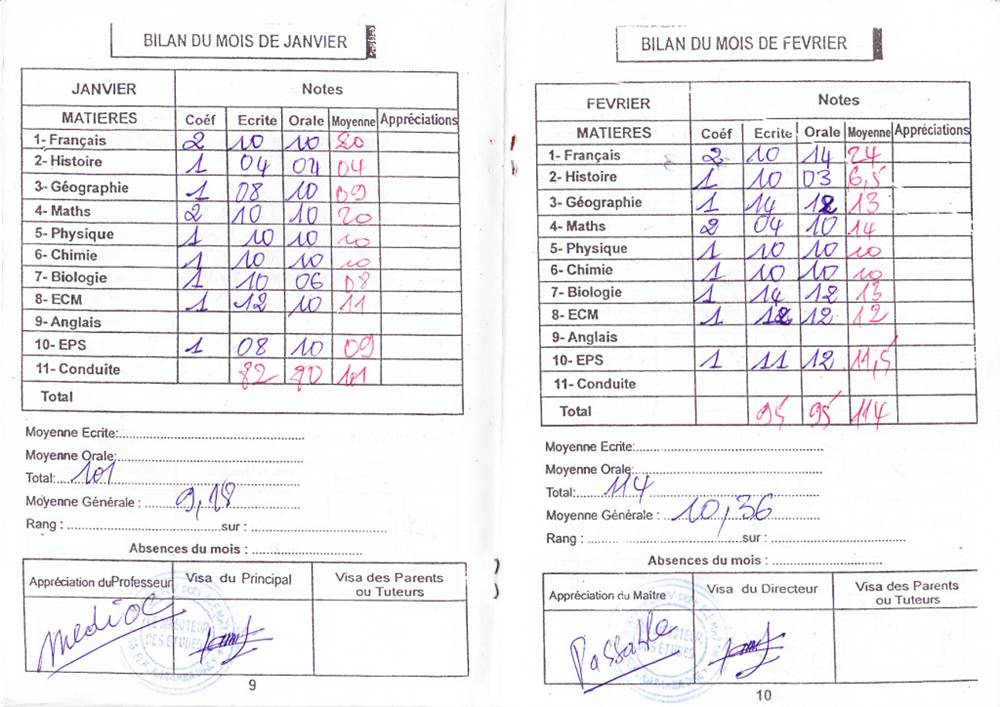 BILAN DU MOIS DE JANVIER
JANVIER Notes
MATIERES Coéf Ecrite Orale Moyenne Appréciations
1- Français 2 10 10 20
2- Histoire 1 04 04 04
3- Géographie 1 08 10 09
4- Maths 2 10 10 20
5- Physique 1 10 10 10
6- Chimie 1 10 10 10
7- Biologie 1 10 06 08
8- ECM 1 12 10 11
9- Anglais
10- EPS 1 08 10 09
11- Conduite 82 80 101
Total
Moyenne Ecrite:
Moyenne Orale:
Total: 101
Moyenne Générale : 9,18
Rang : sur :
Absences du mois :
Appréciation du Professeur Visa du Principal Visa des Parents ou Tuteurs
Medioc
9
BILAN DU MOIS DE FEVRIER
FEVRIER Notes
MATIERES Coéf Ecrite Orale Moyenne Appréciations
1- Français 2 10 14 24
2- Histoire 1 10 03 6,5
3- Géographie 1 14 12 13
4- Maths 2 04 10 14
5- Physique 1 10 10 10
6- Chimie 1 10 10 10
7- Biologie 1 14 12 13
8- ECM 1 12 12 12
9- Anglais
10- EPS 1 11 12 11,5
11- Conduite
Total 95 95 114
Moyenne Ecrite:
Moyenne Orale:
Total: 114
Moyenne Générale : 10,36
Rang : sur :
Absences du mois :
Appréciation du Maître Visa du Directeur Visa des Parents ou Tuteurs
Passable
10